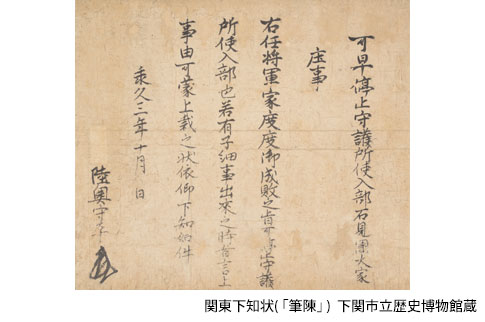 可早停止守護所使入部石見國大家
庄事
右任将軍家度度御成敗之旨可停止守護
所使入部也若有子細事出来之時者言上
事由可蒙上裁之状依仰下知如件
承久三年十月 日
陸奥守平
関東下知状(「筆陳」) 下関市立歴史博物館蔵